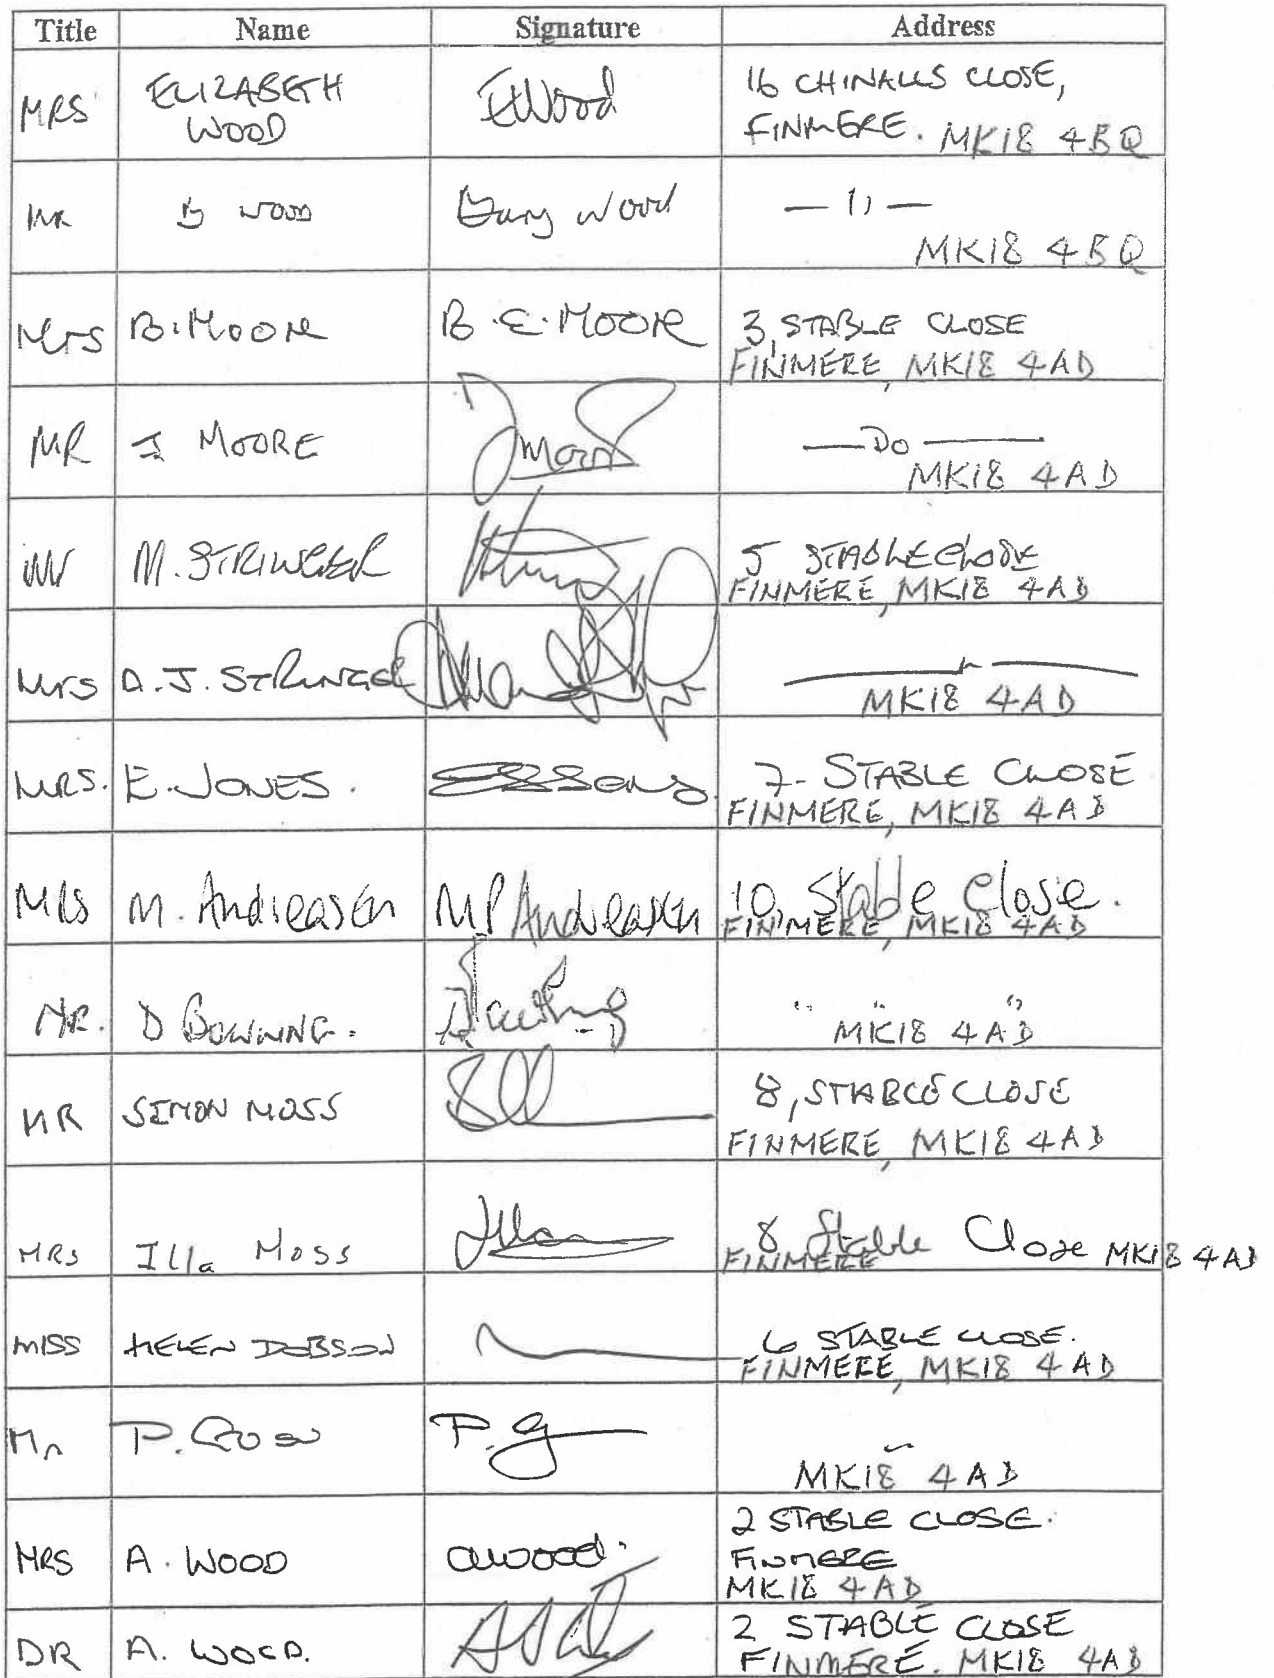 Title Name Signature Address
MRS ELIZABETH WOOD EWood 16 CHINALLS CLOSE,
FINMERE. MK18 4BQ
MR G WOOD Gary Wood — 1) —
MK18 4BQ
Mrs B. MOORE B.E. MOORE 3, STABLE CLOSE
FINMERE, MK18 4AD
MR J MOORE — Do —
MK18 4AD
Mr M. STRINGER 5 STABLE CLOSE
FINMERE, MK18 4AD
Mrs D. J. STRINGER
MK18 4AD
MRS. E. JONES. 7- STABLE CLOSE
FINMERE, MK18 4AD
MRS M. Andreasen MP Andreasen 10, Stable Close.
FINMERE, MK18 4AD
MR. D BOWNING. " " "
MK18 4AD
MR SIMON MOSS 8, STABLE CLOSE
FINMERE, MK18 4AD
MRS Illa Moss Illa 8 Stable Close MK18 4AD
FINMERE
MISS HELEN DOBSON 6 STABLE CLOSE.
FINMERE, MK18 4AD
Mr P. P. G
MK18 4AD
MRS A. WOOD awood. 2 STABLE CLOSE.
FINMERE
MK18 4AD
DR A. WOOD. 2 STABLE CLOSE
FINMERE. MK18 4AD